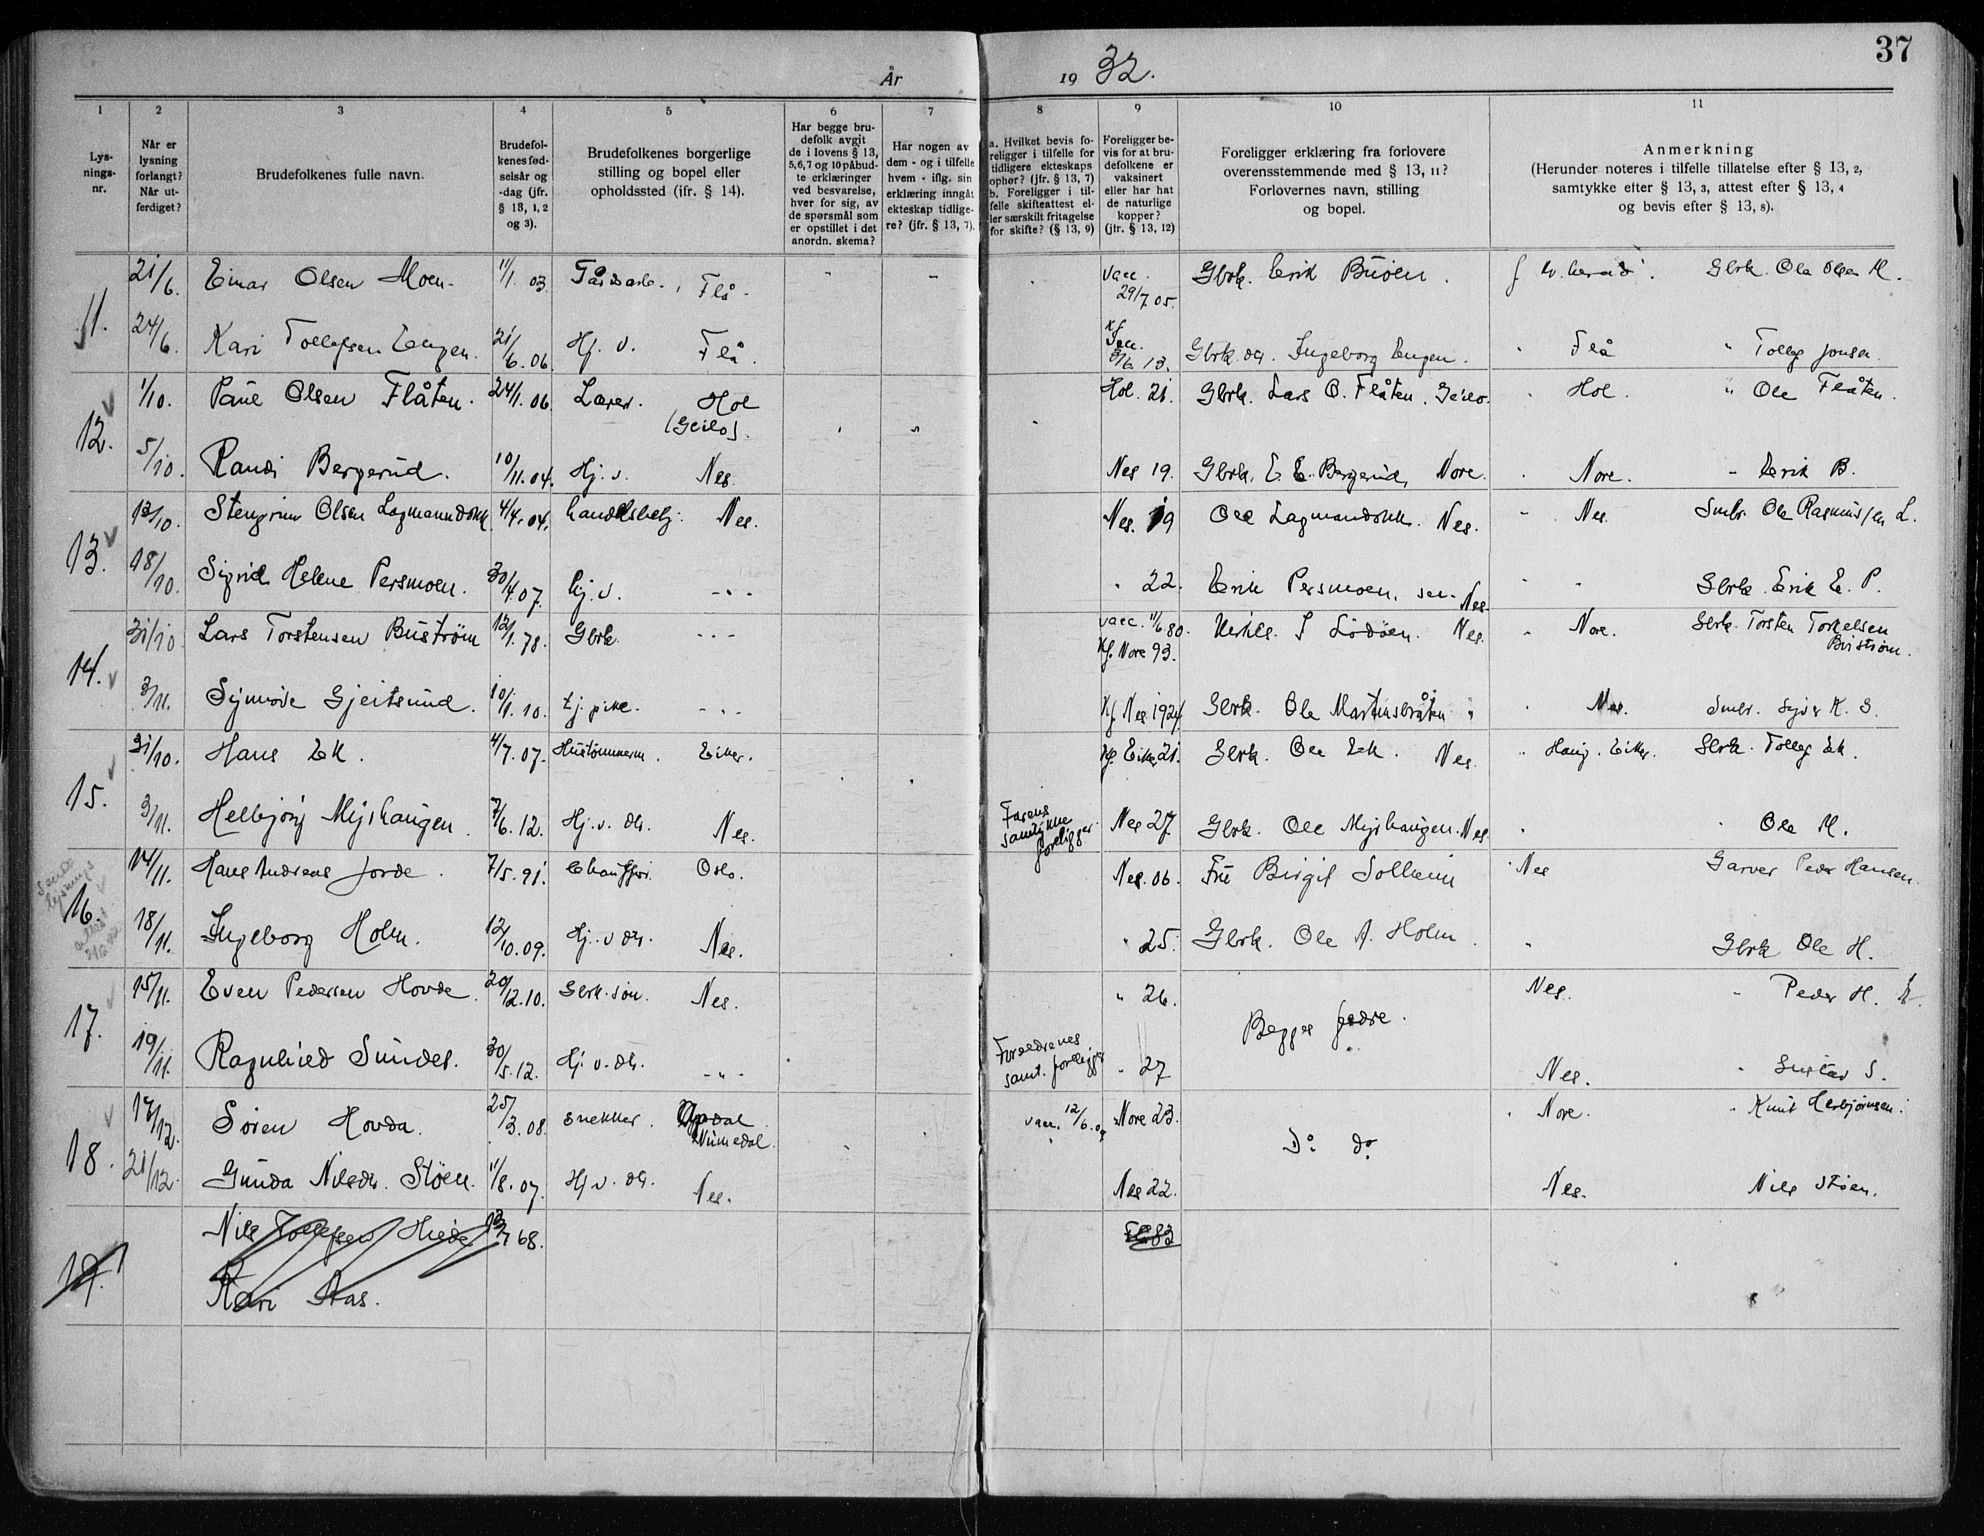 37
År 1932.
1 2 3 4 5 6 7 8 9 10 11
Lysningsnr.
Når er lysning forlangt? Når utferdiget?
Brudefolkenes fulle navn.
Brudefolkenes fødselsår og -dag (jfr. § 13, 1, 2 og 3).
Brudefolkenes borgerlige stilling og bopel eller opholdssted (ifr. § 14).
Har begge brudefolk avgit de i lovens § 13, 5, 6, 7 og 10 påbudte erklæringer ved besvarelse, hver for sig, av de spørsmål som er opstillet i det anordn. skema?
Har nogen av dem - og i tilfelle hvem - iflg. sin erklæring inngåt ekteskap tidligere? (jfr. § 13, 7).
a. Hvilket bevis foreligger i tilfelle for tidligere ekteskaps ophør? (jfr. § 13, 7) b. Foreligger i tilfelle skifteattest eller særskilt fritagelse for skifte? (§ 13, 9)
Foreligger bevis for at brudefolkene er vaksinert eller har hat de naturlige kopper? (jfr. § 13, 12)
Foreligger erklæring fra forlovere overensstemmende med § 13, 11? Forlovernes navn, stilling og bopel.
Anmerkning (Herunder noteres i tilfelle tillatelse efter § 13, 2, samtykke efter § 13, 3, attest efter § 13, 4 og bevis efter § 13, 8).
11. 21/6. Einar Olsen Moen. 11/1. 03. Flå. vacc. 29/7. 05. Gbrk. Erik Buöen. Gbrk. Ola Olsen M.
24/6. Kari Tollefsen Engen. 21/6. 06. Hj. v. Flå. Kf vacc. 3/6. 13. Gbrk. Ingeborg Engen. " Flå " Tollef Jonsen.
12. 1/10. Paul Olsen Flåten. 24/1. 06. Lærer. Hol (Geilo). Hol. 21. Gbrk. Lars O. Flåten, Geilo. " Hol. " Ole Flåten.
5/10. Randi Bergerud. 10/11. 04. Hj. v. Nes. Nes 19. Gbrk. E. E. Bergerud, Nore. " Nore. " Erik B.
13. 13/10. Stengrim Olsen Lagmanndokk 4/4. 04. handelsbetj. Nes. Nes. 19 Ole Lagmandokk. Nes. " Nes. Smbr. Ole Rasmussen L.
18/10. Sigrid Helene Persmoen. 30/4. 07. hj. v. - " - " 22. Erik Persmoen, sen. Nes. " " Gbrk. Erik E. P.
14. 31/10 Lars Torstensen Buström 12/1. 78. Gbrk. - " - vacc. 11/6. 80. Kf. Nore 93. S Lödöen. Nes. " Nore. Gbrk. Torsten Torkelsen Buström.
3/11. Synnöve Gjeitsund. 10/1. 10. tj. pike. - " - Kf Nes 1924. Gbrk. Ole Martinsbråten " " Nes. Smbr. Syver K. G.
15. 31/10. Hans Ek. 4/7. 07. Hustömmerm. Eiker. Kf Eiker 21. Gbrk. Ole Ek. Nes. " Haug. Eiker. Gbrk. Tollef Ek.
3/11. Helbjörg Myrhaugen. 7/6. 12. Hj. v. dtr. Nes. Farens samtykke foreligger. Nes 27. Gbrk. Ole Myrhaugen. Nes. " " Ole M.
Sendt lysnings attest
16. 14/11. Hans Andreas Jorde. 7/5. 91. Chauffør. Oslo. Nes. 06. Fru Birgit Solheim " Nes Garver Peder Hansen.
18/11. Ingeborg Holm. 12/10. 09. Hj. v dtr. Nes. " 25. Gbrk. Ole A. Holm. " Gbrk Ole H.
17. 15/11. Even Pedersen Hovde. 20/12. 10. Gbrk. sön. Nes. " 26. Begges fedre. Nes. " Peder H.
19/11. Ragnhild Sundet. 30/5. 12. Hj. v. dtr. - " - Foreldrenes samt. foreligger " 27 Nes. " Gustav S.
18. 17/12. Sören Hovda. 25/3. 08. snekker. Opdal Numedal. vacc. 12/6. 09 Nore 23. Do do. " Nore. " Knut Herbjörnsen.
21/12. Gunda Nilsdtr. Stöen. 11/8. 07. Hj v. dtr. Nes. Nes 22. Nes. Nils Stöen.
19. Nils Tollefsen 68. 83
Kari Aas.